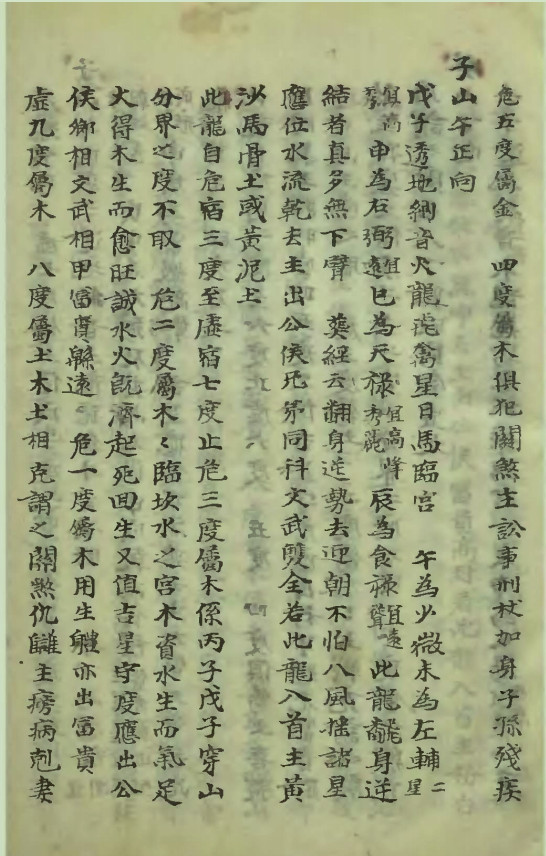 危五度屬金 四度屬木俱犯關煞主訟事刑杖加身子孫殘疾
子山午正向
戊子透地納音火龍虎禽星日馬臨宮 午為少微未為左輔二星
宜高秀申為石弼宜遠巳為天祿宜高峰秀麗辰為食祿宜遠聳此龍翻身逆
結者真多無下臂 葬經云翻身逆勢去迎朝不怕八風搖諸星
應位水流乾去主出公侯兄弟同科文武雙全若此龍入首主黃
沙馬骨土或黃泥土
此龍自危宿三度至虛宿七度止危三度屬木係丙子戊子穿山
分界之度不取 危二度屬木々臨坎水之宮木資水生而氣足
火得木生而愈旺誠水火既濟起死回生又值吉星守度應出公
侯鄉相文武相甲富貴綿遠 危一度屬木用生體亦出富貴
虛九度屬木 八度屬土木土相克謂之關煞仇讎主癆病剋妻